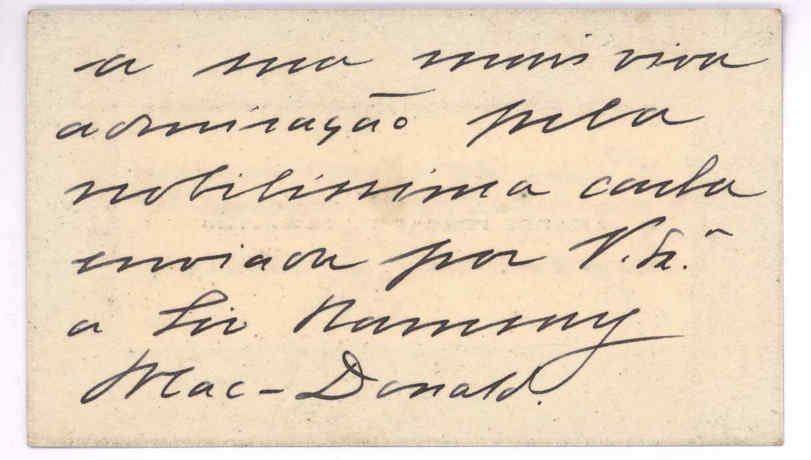 a sua mais viva
admiração pela
nobilissima carta
enviada por V. Ex.ª
a Sir Ramsay
Mac-Donald.